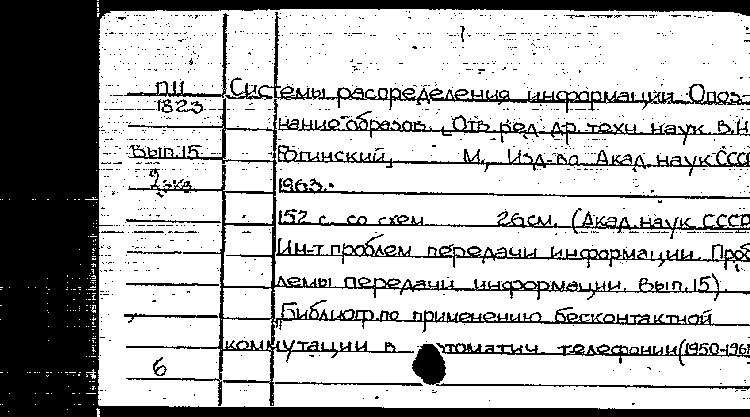 П11
1823
Вып.15
2 экз
Системы распределения информации. Опоз-
нание образов. Отв. ред. др. техн. наук В.Н.
Рогинский. М., Изд-во Акад. наук СССР
1963.
152 с. со схем 26 см. (Акад. наук СССР
Ин-т проблем передачи информации. Проб
лемы передачи информации. Вып.15).
"Библиогр. по применению бесконтактной
коммутации в томатич. телефонии (1950-196
6